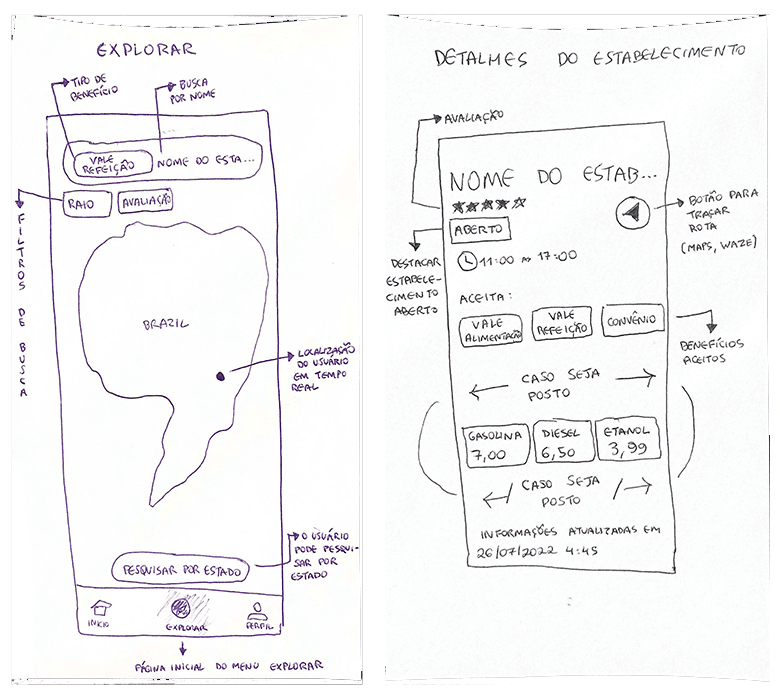 EXPLORAR
TIPO DE
BENEFÍCIO
BUSCA
POR NOME
VALE
REFEIÇÃO
NOME DO ESTA...
RAIO
AVALIAÇÃO
FILTROS DE BUSCA
BRAZIL
LOCALIZAÇÃO
DO USUÁRIO
EM TEMPO
REAL
O USUÁRIO
PODE PESQUI-
SAR POR
ESTADO
PESQUISAR POR ESTADO
INICIO
EXPLORAR
PERFIL
PÁGINA INICIAL DO MENU EXPLORAR
DETALHES DO ESTABELECIMENTO
AVALIAÇÃO
NOME DO ESTAB...
ABERTO
BOTÃO PARA
TRAÇAR
ROTA
(MAPS, WAZE)
DESTACAR
ESTABELE-
CIMENTO
ABERTO
11:00 AS 17:00
ACEITA:
VALE
ALIMENTAÇÃO
VALE
REFEIÇÃO
CONVÊNIO
BENEFÍCIOS
ACEITOS
CASO SEJA
POSTO
GASOLINA
7,00
DIESEL
6,50
ETANOL
3,99
CASO SEJA
POSTO
INFORMAÇÕES ATUALIZADAS EM
26/07/2022 4:45